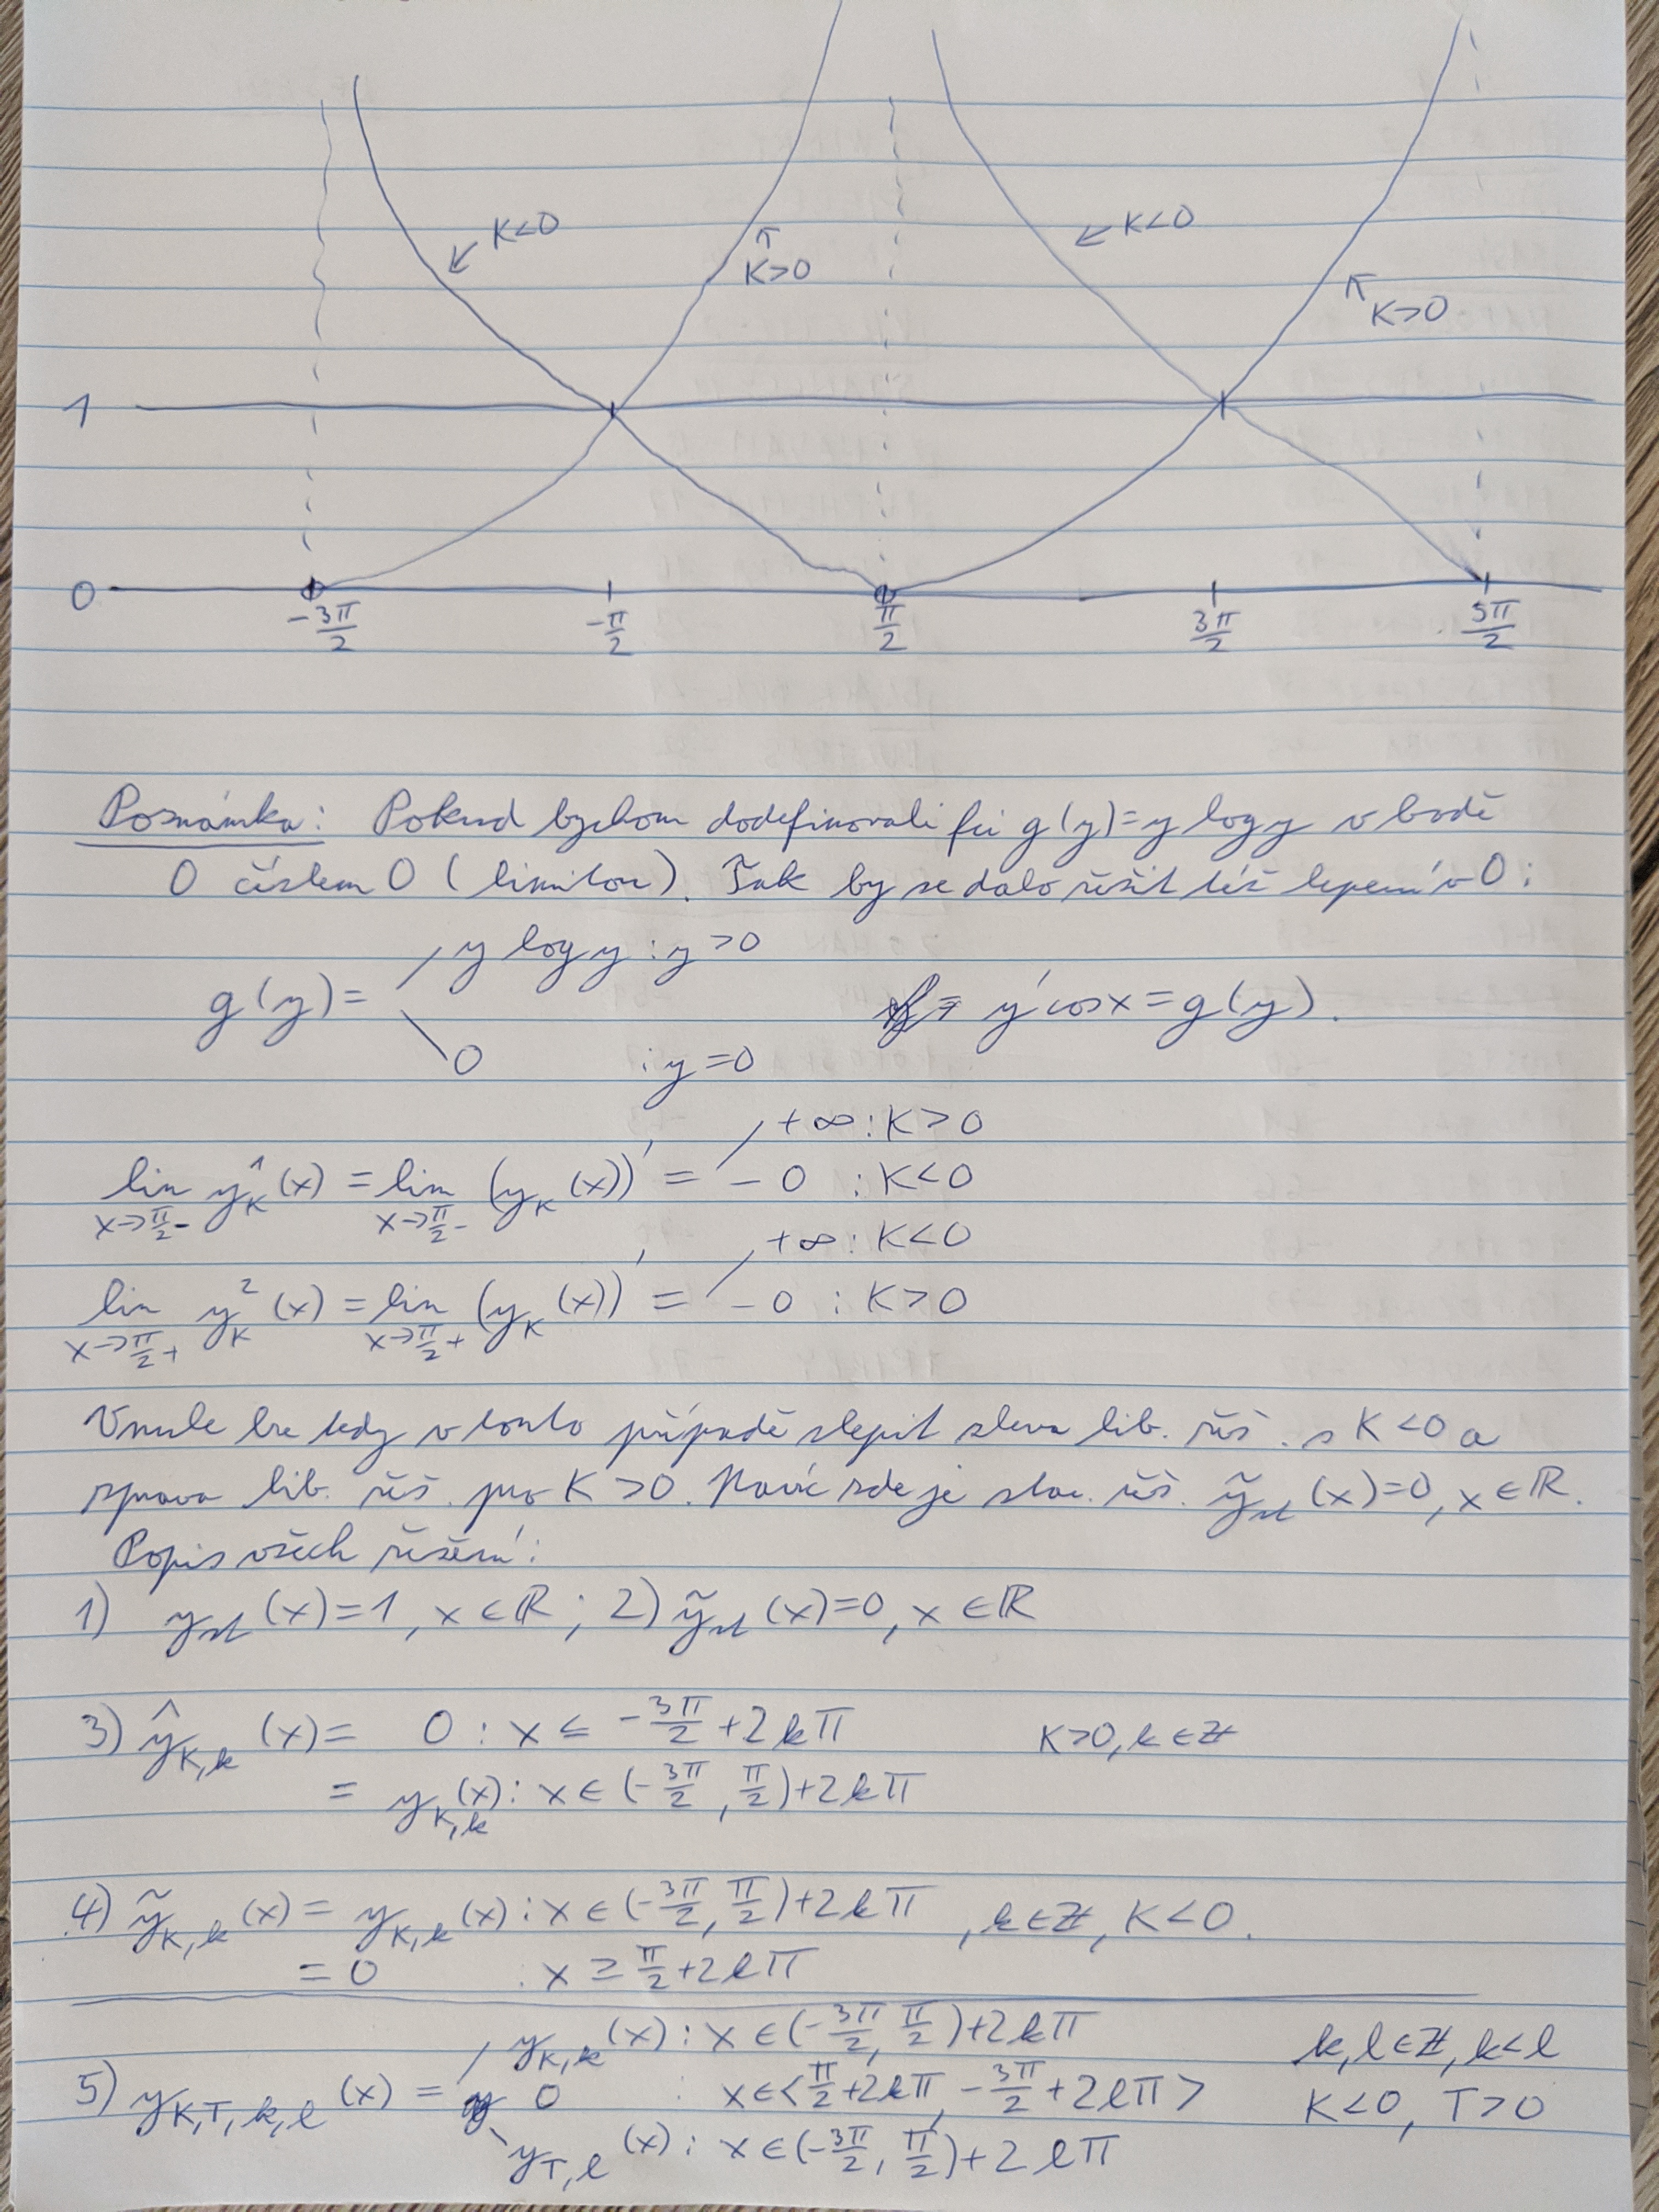 K<0
K>0
K<0
K>0
1
0
-3π/2
-π/2
π/2
3π/2
5π/2
Poznámka: Pokud bychom dodefinovali fci g(y)=y log y v bodě
0 číslem 0 (limitou). Tak by se dalo řešit též lepení v 0:
g(y)= y log y : y>0
0 : y=0
y' cos x = g(y).
lim x→π/2- y_K^1'(x) = lim x→π/2- (y_K(x))' = +∞ : K>0
- 0 : K<0
lim x→π/2+ y_K^2'(x) = lim x→π/2+ (y_K(x))' = +∞ : K<0
- 0 : K>0
V nule lze tedy v tomto případě slepit zleva lib. řeš. s K<0 a
zprava lib. řeš. pro K>0. Navíc zde je stac. řeš. ỹ_st(x)=0, x∈ℝ.
Popis všech řešení:
1) y_st(x)=1, x∈ℝ; 2) ỹ_st(x)=0, x∈ℝ
3) ŷ_K,k(x)= 0 : x ≤ -3π/2+2kπ K>0, k∈ℤ
= y_K,k(x): x∈(-3π/2, π/2)+2kπ
4) ỹ_K,k(x) = y_K,k(x): x∈(-3π/2, π/2)+2kπ, k∈ℤ, K<0.
= 0 : x ≥ π/2+2kπ
5) y_K,T,k,l(x) = y_K,k(x): x∈(-3π/2, π/2)+2kπ k,l∈ℤ, k<l
0 : x∈<π/2+2kπ, -3π/2+2lπ> K<0, T>0
y_T,l(x): x∈(-3π/2, π/2)+2lπ